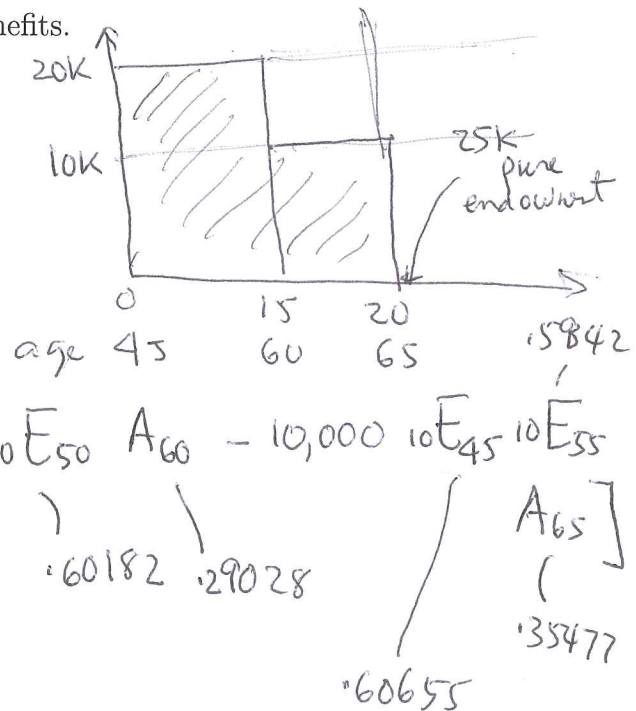 nefits.
20K
10K
25K
pure
endowment
0 15 20
age 45 60 65
.5842
0E50 A60 - 10,000 10E45 10E55
A65 ]
.60182 .29028
.35477
.60655